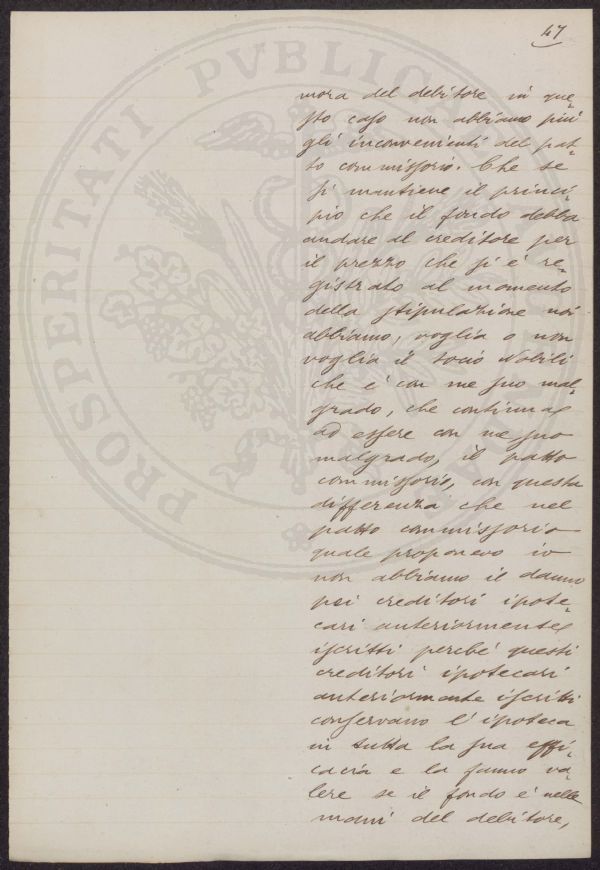 47
mora del debitore in que-
sto caso non abbiamo più
gli inconvenienti del pat-
to commissorio. Che se
si mantiene il princi-
pio che il fondo debba
andare al creditore per
il prezzo che si è re-
gistrato al momento
della stipulazione noi
abbiamo, voglia o non
voglia il socio Nobili
che è con me suo mal-
grado, che continua
ad essere con me suo
malgrado, il patto
commissorio, con questa
differenza che nel
patto commissorio
quale proponevo io
non abbiamo il danno
pei creditori ipote-
cari anteriormente
iscritti perché questi
creditori ipotecari
anteriormente iscritti
conservano l'ipoteca
in tutta la sua effi-
cacia e la fanno va-
lere se il fondo è nelle
mani del debitore,
PROSPERITATI PVBLICAE